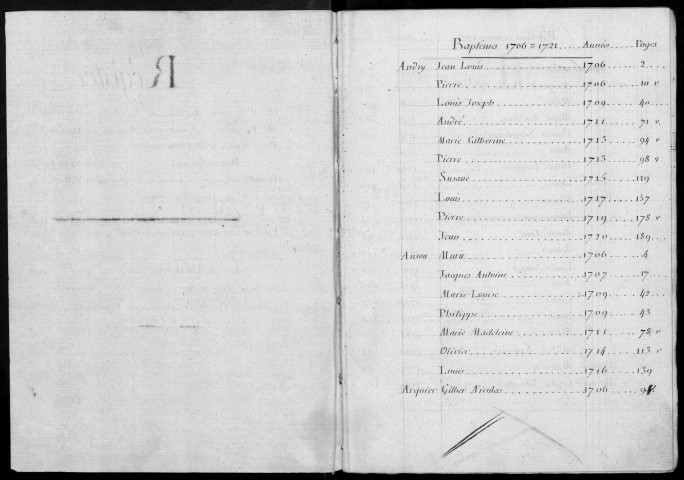 R
Baptêmes 1706=1721..... Années Pages
Andry Jean Louis.......... 1706..... 2...
Pierre.......... 1706..... 10 v
Louis Joseph.......... 1709..... 40...
André.......... 1711..... 71 v.
Marie Catherine.......... 1713..... 94 v
Pierre.......... 1713..... 98 v
Susane.......... 1715..... 119
Louis.......... 1717..... 157
Pierre.......... 1719..... 178 v
Jean.......... 1720..... 189...
Marie.......... 1706..... 4
Jacques Antoine.......... 1707..... 17...
Marie Louise.......... 1709..... 42...
Philippe.......... 1709..... 43
Marie Madeleine.......... 1711..... 78 v
Olivier.......... 1714..... 113 v
Louis.......... 1716..... 139
Arquier Gilber Nicolas.......... 1706.....